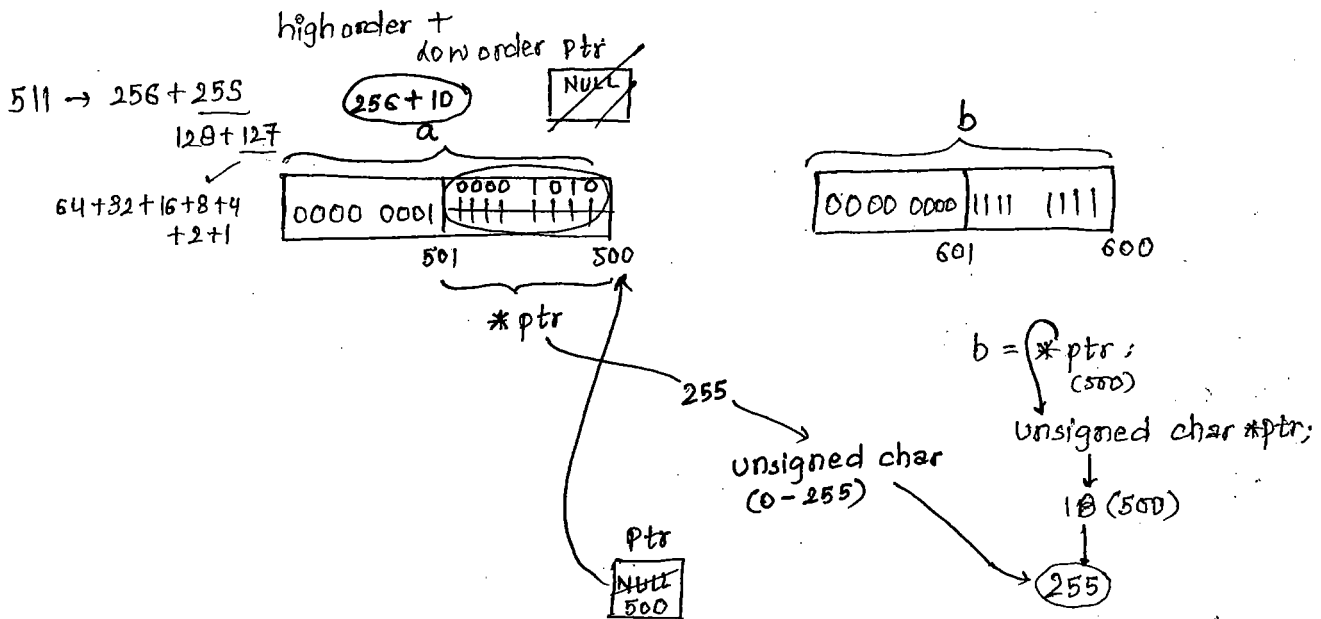 high order +
low order
ptr
NULL
511 → 256 + 255
128 + 127
64+32+16+8+4
+2+1
256+10
a
0000 1010
0000 0001 1111 1111
501 500
*ptr
b
0000 0000 1111 1111
601 600
b = *ptr;
(500)
unsigned char *ptr;
1B (500)
255
255
unsigned char
(0 - 255)
ptr
NULL
500